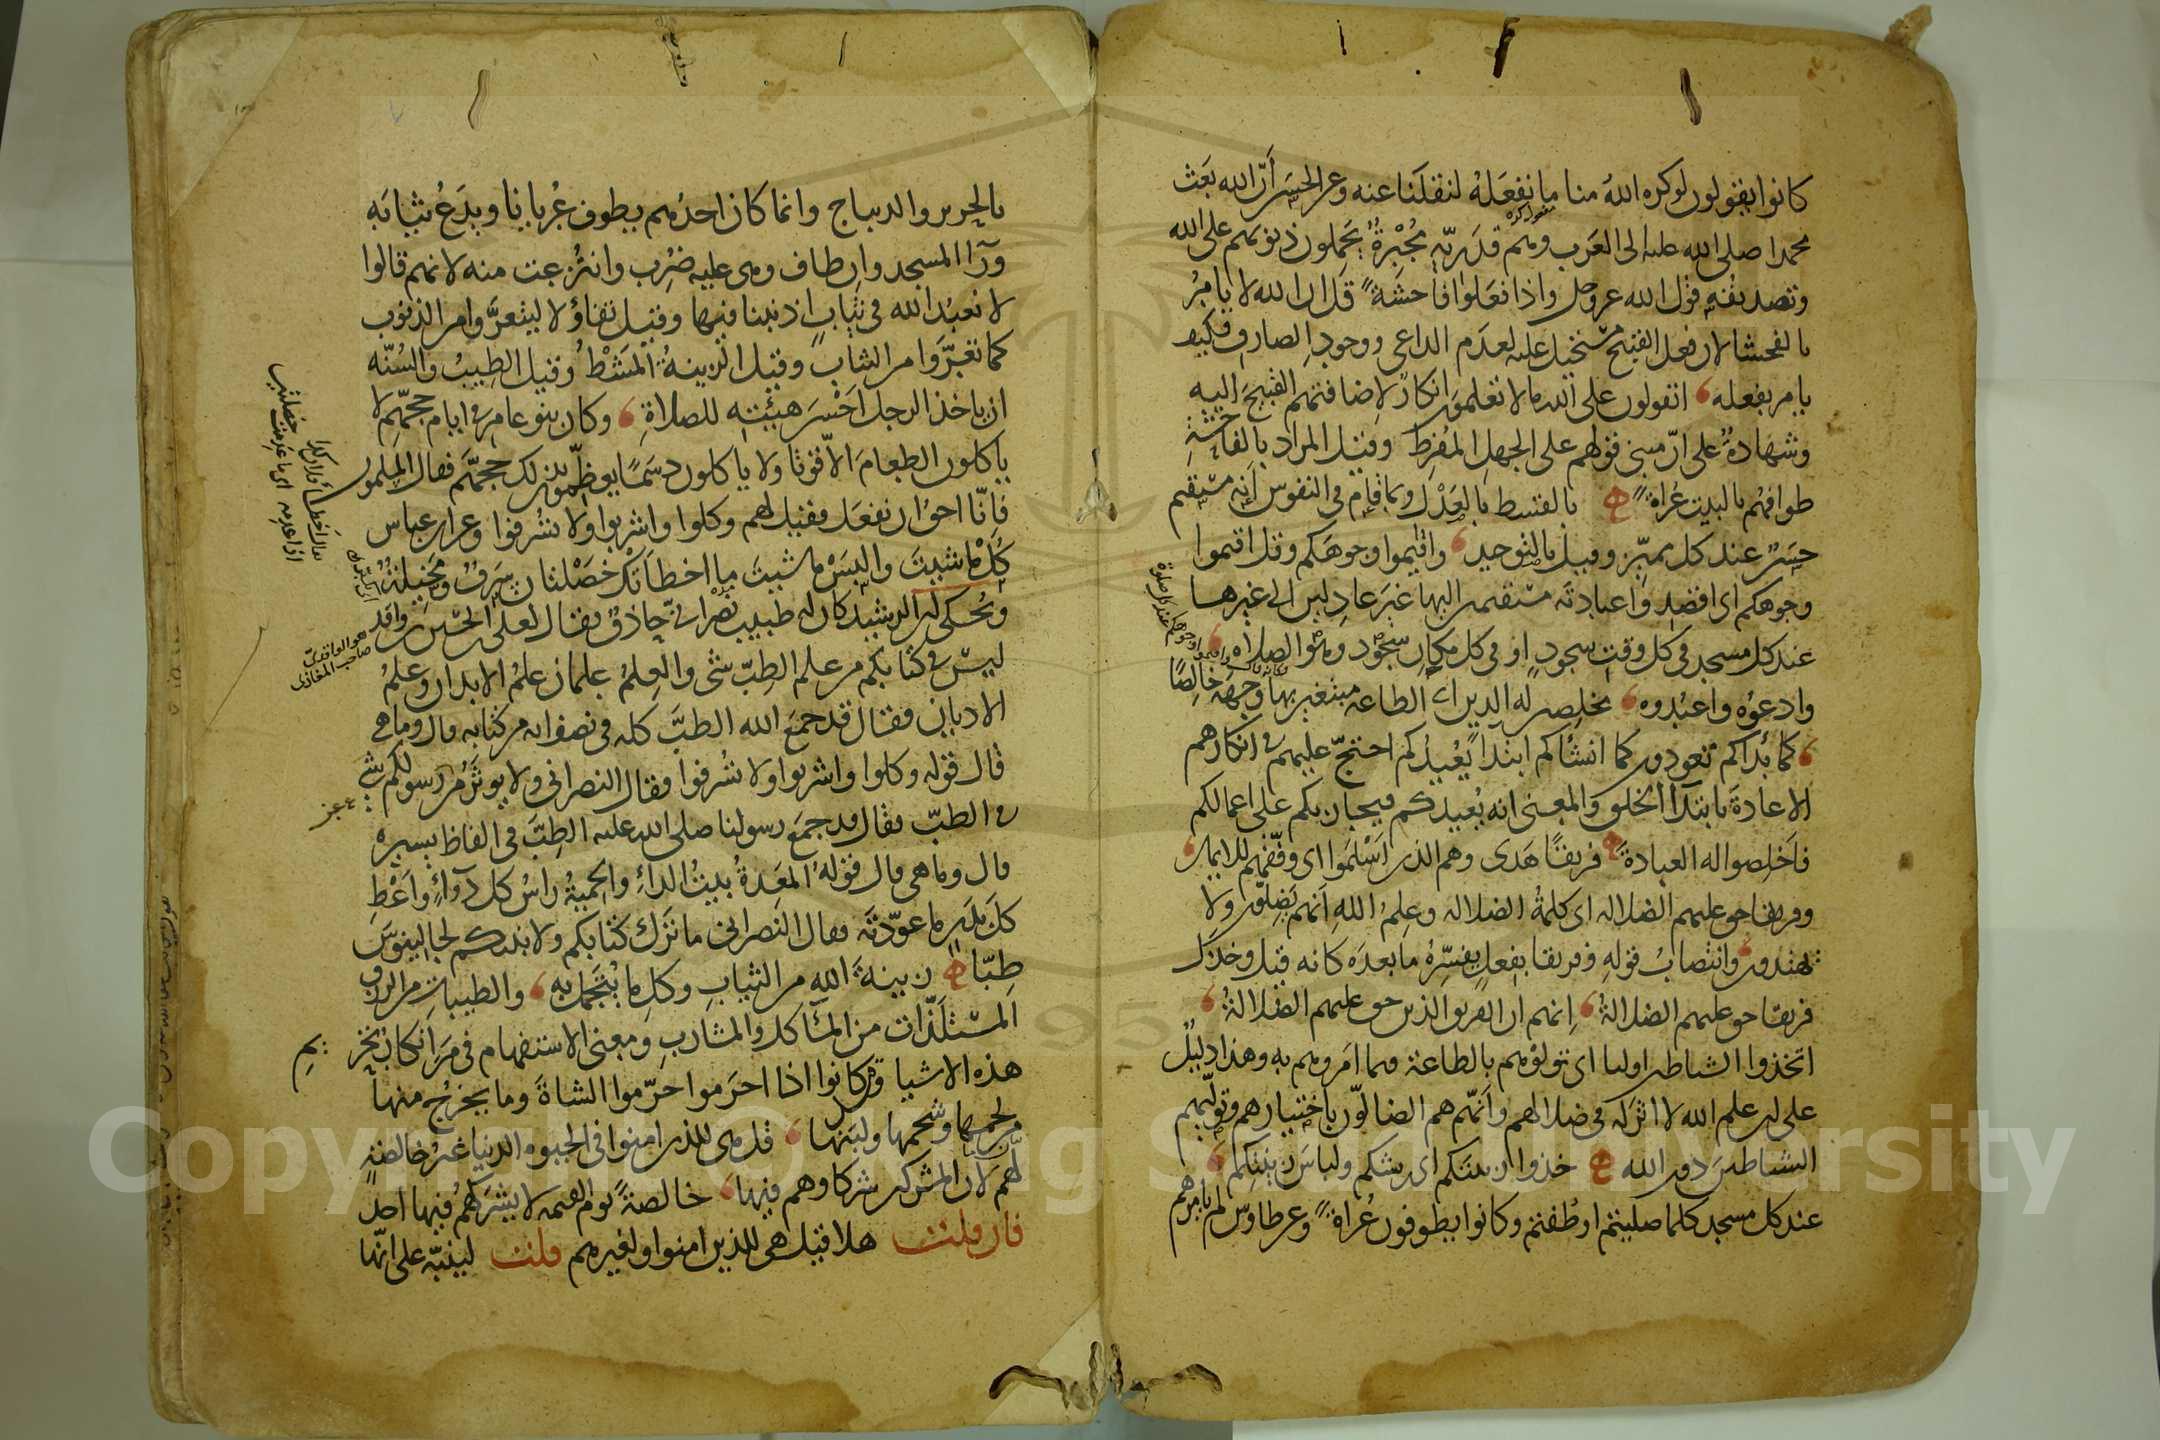 كانوا يقولون لو كره الله منا ما نفعله لنقلنا عنه وعن الحسن أن الله بعث
محمدا صلى الله عليه الى العرب وهم قدرية مجبرة يحملون ذنوبهم على الله
وتصديقه قول الله عز وجل واذا فعلوا فاحشة قل ان الله لا يأمر
بالفحشا لان فعل القبيح مستحيل عليه لعدم الداعي ووجود الصارف فكيف
يامر بفعله اتقولون على الله ما لا تعلمون انكار لاضافتهم القبيح اليه
وشهادة على ان مبنى قولهم على الجهل المفرط وقيل المراد بالفاحشة
طوافهم بالبيت عراة بالقسط بالعدل وبما قام في النفوس انه مستقيم
حسن عند كل مميز وقيل بالتوحيد واقيموا وجوهكم وقل اقيموا
وجوهكم اى اقصدوا عبادته مستقيمين اليها غير عادلين الى غيرها
عند كل مسجد في كل وقت سجود او في كل مكان سجود وهو الصلاه
وادعوه واعبدوه مخلصين له الدين اى الطاعة مبتغين بها وجهه خالصا
كما بدأكم تعودون كما انشأكم ابتداً يعيدكم احتج عليهم في انكارهم
الاعادة بابتدآ الخلق والمعنى انه يعيدكم فيجازيكم على اعمالكم
فاخلصوا له العبادة فريقا هدى وهم الذين اسلموا اى وفقهم للايمان
وفريقا حق عليهم الضلالة اى كلمة الضلالة وعلم الله انهم يضلون ولا
يهتدون وانتصاب قوله وفريقا بفعل يفسره ما بعده كانه قيل وخذل
فريقا حق عليهم الضلالة انهم ان الفريق الذين حق عليهم الضلالة
اتخذوا الشياطين اوليا اى تولوهم بالطاعة فيما امروهم به وهذا دليل
على ان علم الله لا اثر له في ضلالهم وانهم هم الضالون باختيارهم وتوليهم
الشياطين دون الله خذوا زينتكم اى ريشكم ولباس زينتكم
عند كل مسجد كلما صليتم او طفتم وكانوا يطوفون عراة وعن طاوس لم يامرهم
بالحرير والديباج وانما كان احدهم يطوف عريانا ويدع ثيابه
ورآ المسجد وان طاف وهي عليه ضرب وانتزعت منه لانهم قالوا
لا نعبد الله في ثياب اذنبنا فيها وقيل تفاؤلا ليتعروا من الذنوب
كما تعروا من الثياب وقيل الزينة المشط وقيل الطيب والسنة
ان ياخذ الرجل احسن هيئته للصلاة وكان بنو عامر في ايام حجهم لا
ياكلون الطعام الا قوتا ولا ياكلون دسما يعظمون بذلك حجهم فقال المسلمون
فانا احق ان نفعل فقيل لهم وكلوا واشربوا ولا تسرفوا وعن ابن عباس
كل ما شيت والبس ما شيت ما اخطأتك خصلتان سرف ومخيلة
ويحكى ان الرشيد كان له طبيب نصراني حاذق فقال لعلي بن الحسين بن واقد
ليس في كتابكم من علم الطب شى والعلم علمان علم الابدان وعلم
الاديان فقال قد جمع الله الطب كله في نصف اية من كتابه قال وما هي
قال قوله وكلوا واشربوا ولا تسرفوا فقال النصراني ولا يوثر من رسولكم شي
في الطب فقال قد جمع رسولنا صلى الله عليه الطب في الفاظ يسيره
قال وما هي قال قوله المعدة بيت الداء والحمية راس كل دوآء واعط
كل بدن ما عودته فقال النصراني ما ترك كتابكم ولا نبيكم لجالينوس
طبا زينة الله من الثياب وكل ما يتجمل به والطيبات من الرزق
المستلذات من المآكل والمشارب ومعنى الاستفهام في من انكار تحريم
هذه الاشيا قيل كانوا اذا احرموا حرموا الشاة وما يخرج منها
من لحمها وشحمها ولبنها قل هي للذين امنوا في الحيوة الدنيا غير خالصة
لهم لان المشركين شركاوهم فيها خالصة يوم القيمة لا يشركهم فيها احد
فان قلت هلا قيل هي للذين امنوا ولغيرهم قلت لينبه على انها
هو الواقدي
صاحب المغازي
Copyright © King Saud University